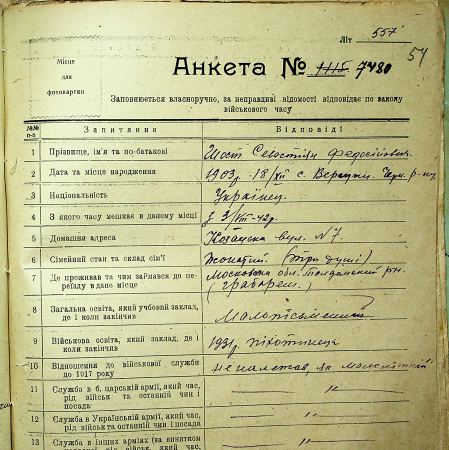 Літ 557
54
Місце
для
фотокартки
Анкета № 7480
Заповнюється власноручно, за неправдиві відомості відповідає по закону
військового часу
№№ п-п
Запитання
Відповіді
1 Прізвище, ім'я та по-батькові Шост Севостіян Федосійович
2 Дата та місце народження 1903 р. 18/XII с.
3 Національність Українец
4 З якого часу мешкає в даному місці з 3/VIII-42 р.
5 Домашня адреса вул. N 7.
6 Сімейний стан та склад сім'ї Жонатий (три душі)
7 Де проживав та чим займався до пе- Московска обл. рн.
реїзду в дане місце (грабором)
8 Загальна освіта, який учбовий заклад,
де і коли закінчив Малописьменний
9 Військова освіта, який заклад, де і 1931 р. піхотинец
коли закінчив
10 Відношення до військової служби не належав,
до 1917 року
11 Служба в б. царській армії, який час, "
рід військ та останній чин і
посада
12 Служба в Українській армії, який час, "
рід військ та останній чин і посада
13 Служба в інших арміях (за винятком "